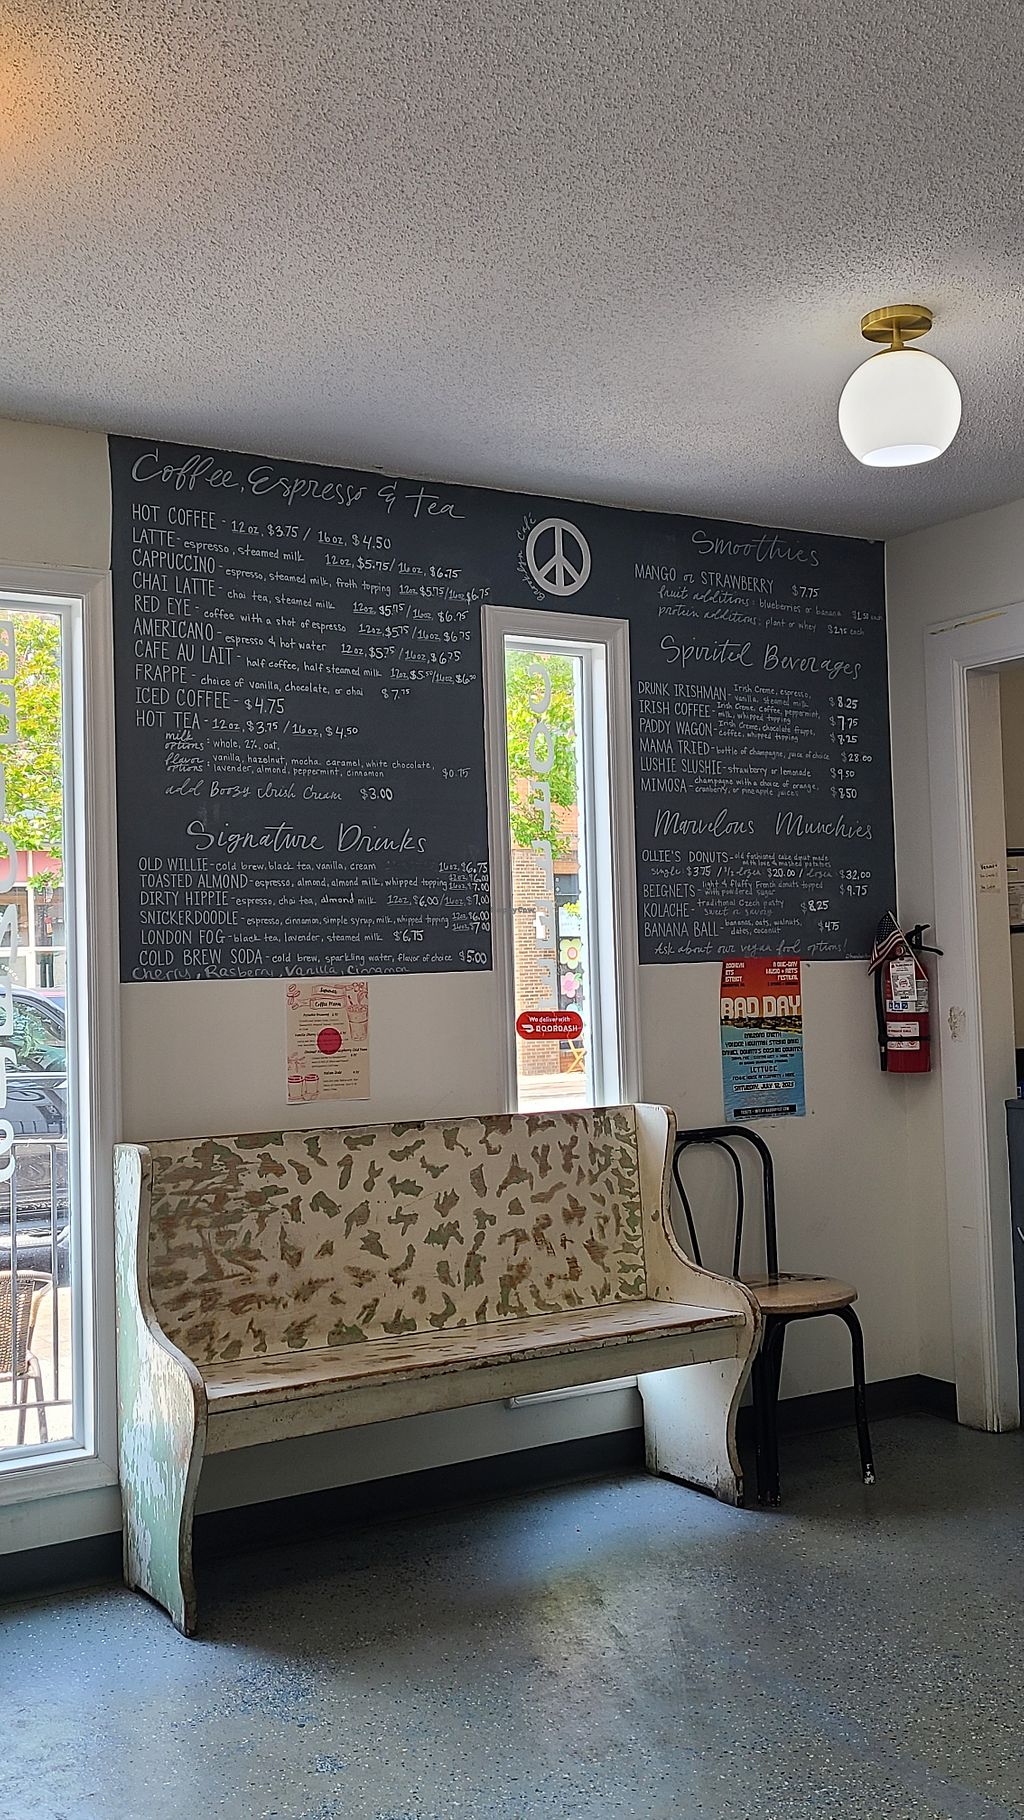 Coffee, Espresso & Tea
HOT COFFEE - 12oz, $3.75 / 16oz, $4.50
LATTE - espresso, steamed milk 12oz, $5.75 / 16oz, $6.75
CAPPUCCINO - espresso, steamed milk, froth topping 12oz $5.75/16oz $6.75
CHAI LATTE - chai tea, steamed milk 12oz, $5.75/16oz, $6.75
RED EYE - coffee with a shot of espresso 12oz, $5.75/16oz, $6.75
AMERICANO - espresso & hot water 12oz, $5.75/16oz, $6.75
CAFE AU LAIT - half coffee, half steamed milk 12oz $5.50/16oz, $6.50
FRAPPE - choice of vanilla, chocolate, or chai $7.75
ICED COFFEE - $4.75
HOT TEA - 12oz, $3.75 / 16oz, $4.50
milk options: whole, 2%, oat,
flavor options: vanilla, hazelnut, mocha, caramel, white chocolate, lavender, almond, peppermint, cinnamon $0.75
add Boozy Irish Cream $3.00
Signature Drinks
OLD WILLIE - cold brew, black tea, vanilla, cream 16oz, $6.75
TOASTED ALMOND - espresso, almond, almond milk, whipped topping 12oz $6.00 16oz $7.00
DIRTY HIPPIE - espresso, chai tea, almond milk 12oz, $6.00 /16oz, $7.00
SNICKERDOODLE - espresso, cinnamon, simple syrup, milk, whipped topping 12oz $6.00 16oz $7.00
LONDON FOG - black tea, lavender, steamed milk $6.75
COLD BREW SODA - cold brew, sparkling water, flavor of choice $5.00
Cherry, Rasberry, Vanilla, Cinnamon
Smoothies
MANGO or STRAWBERRY $7.75
fruit additions: blueberries or banana $1.50 each
protein additions: plant or whey $2.95 each
Spirited Beverages
DRUNK IRISHMAN - Irish Creme, espresso, vanilla, steamed milk $8.25
IRISH COFFEE - Irish Creme, Coffee, peppermint, milk, whipped topping $7.75
PADDY WAGON - Irish Creme, chocolate frappe, coffee, whipped topping
MAMA TRIED - bottle of champagne, juice of choice $28.00
LUSHIE SLUSHIE - strawberry or lemonade $9.50
MIMOSA - champagne with a choice of orange, cranberry, or pineapple juices $8.50
Marvelous Munchies
OLLIE'S DONUTS - old fashioned cake donut made with love & mashed potatoes
single $3.75 / ½ dozen $20.00 / dozen $32.00
BEIGNETS - light & fluffy French donuts topped with powdered sugar $9.75
KOLACHE - traditional Czech pastry sweet or savory $8.25
BANANA BALL - bananas, oats, walnuts, dates, coconut $4.75
Ask about our vegan food options!
We deliver with
DOORDASH
Coffee Menu
A ONE-DAY
MUSIC + ARTS
FESTIVAL
BAD DAY
RAILROAD EARTH
YONDER MOUNTAIN STRING BAND
DANIEL DONATO'S COSMIC COUNTRY
LETTUCE
SATURDAY, JULY 12, 2025
COFFEE